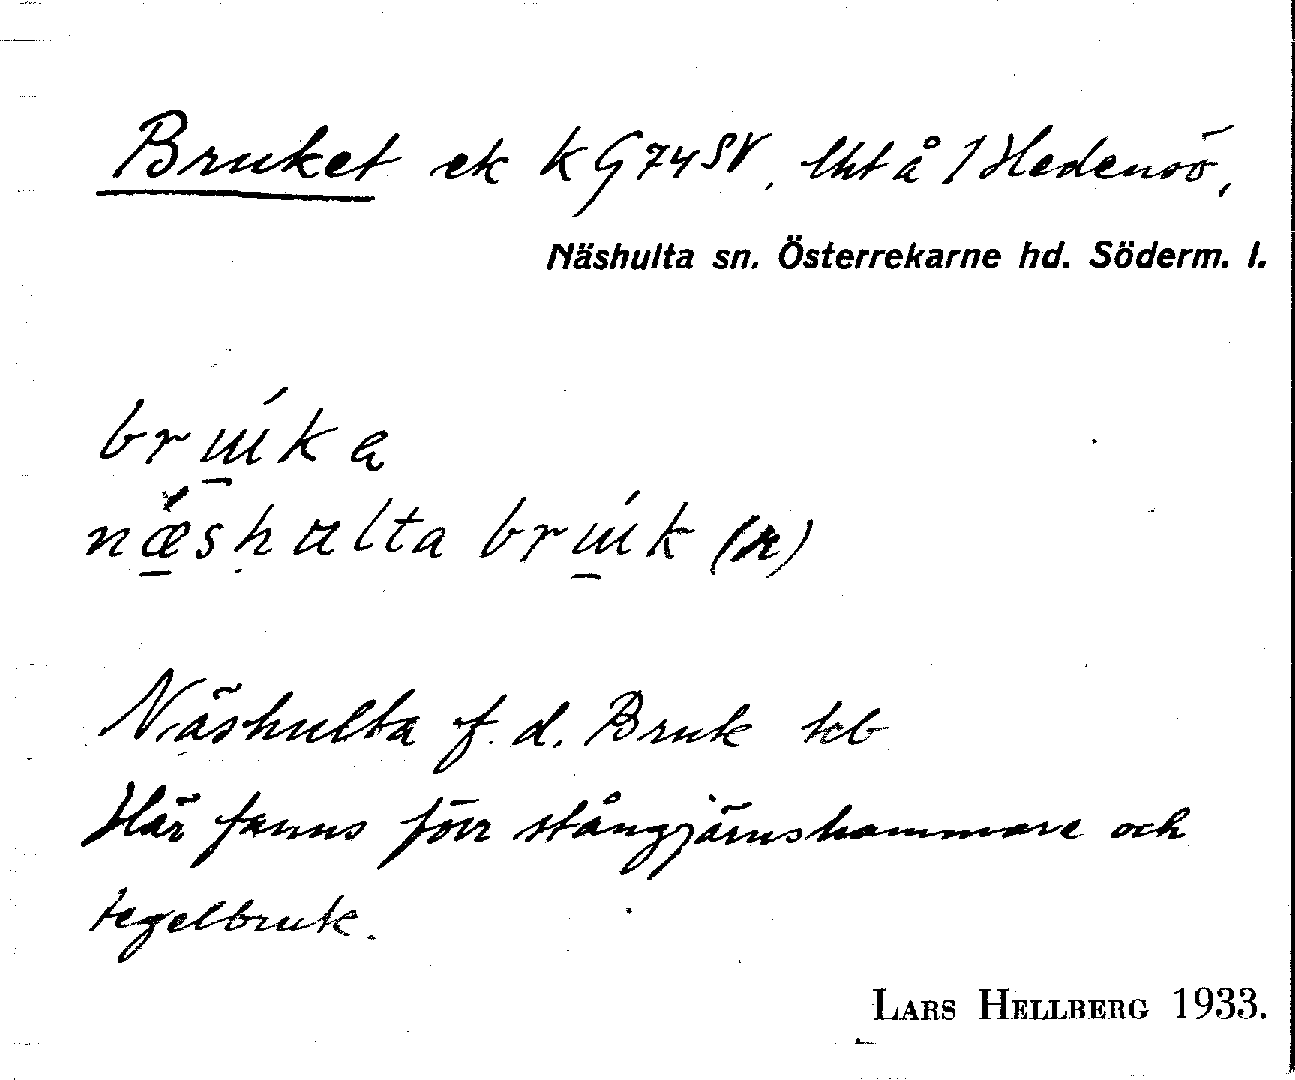 Bruket ek k G 74 SV, lht å 1 Hedensö,
Näshulta sn. Österrekarne hd. Söderm. l.
brúka
næshulta brúk (n)
Näshulta f.d. Bruk kb
Här fanns förr stångjärnshammare och
tegelbruk.
LARS HELLBERG 1933.